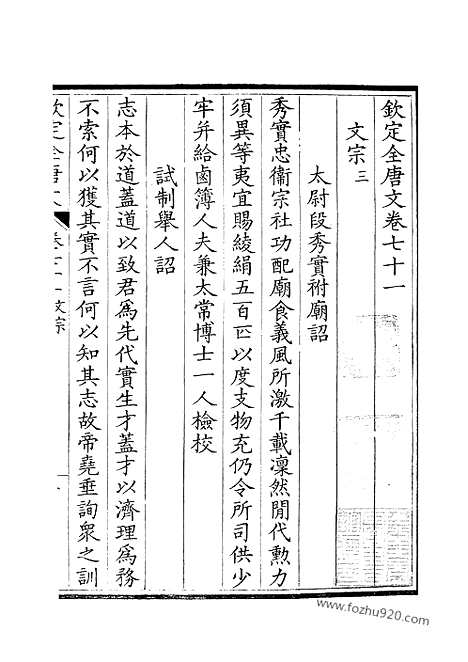 欽定全唐文卷七十一
文宗三
太尉段秀實祔廟詔
秀實忠衞宗社功配廟食義風所激千載凜然間代勳力
須異等夷宜賜綾絹五百匹以度支物充仍令所司供少
牢并給鹵簿人夫兼太常博士一人檢校
試制舉人詔
志本於道蓋道以致君爲先代實生才蓋才以濟理爲務
不索何以獲其實不言何以知其志故帝堯垂詢衆之訓
欽定全唐文 卷七十一 文宗
一
www.fozhu920.com